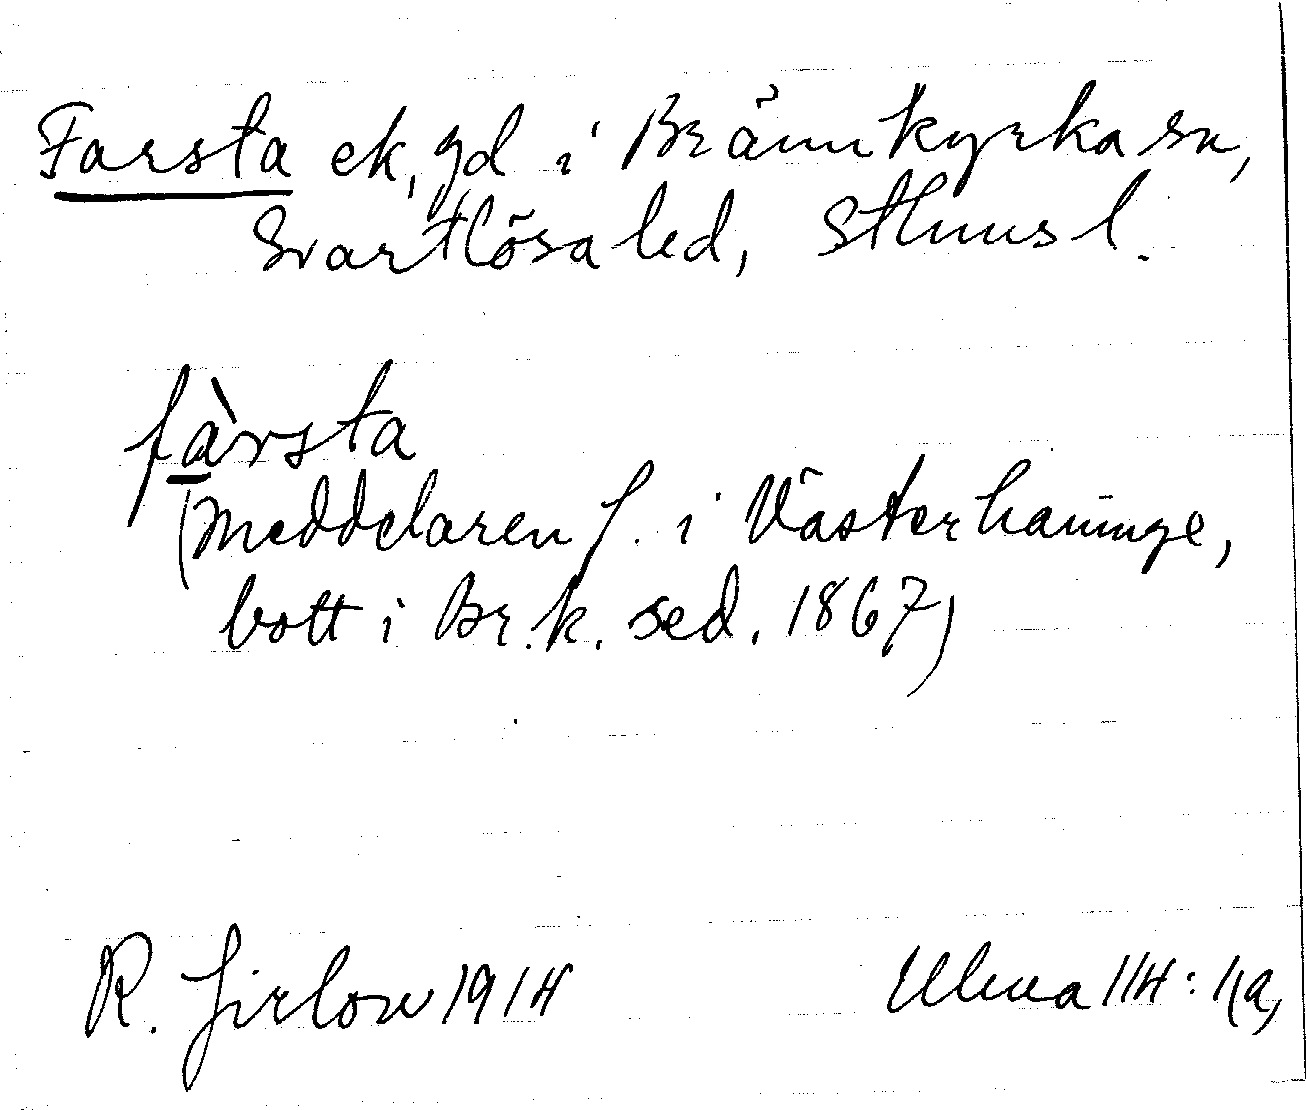 Farsta ek, gd i Brännkyrka sn,
Svartlösa hd, Sthms l.
fàrsta
(Meddelaren f. i Västerhaninge,
bott i Br.k. sed. 1867)
R. Jirlow 1914
Ulma 114: